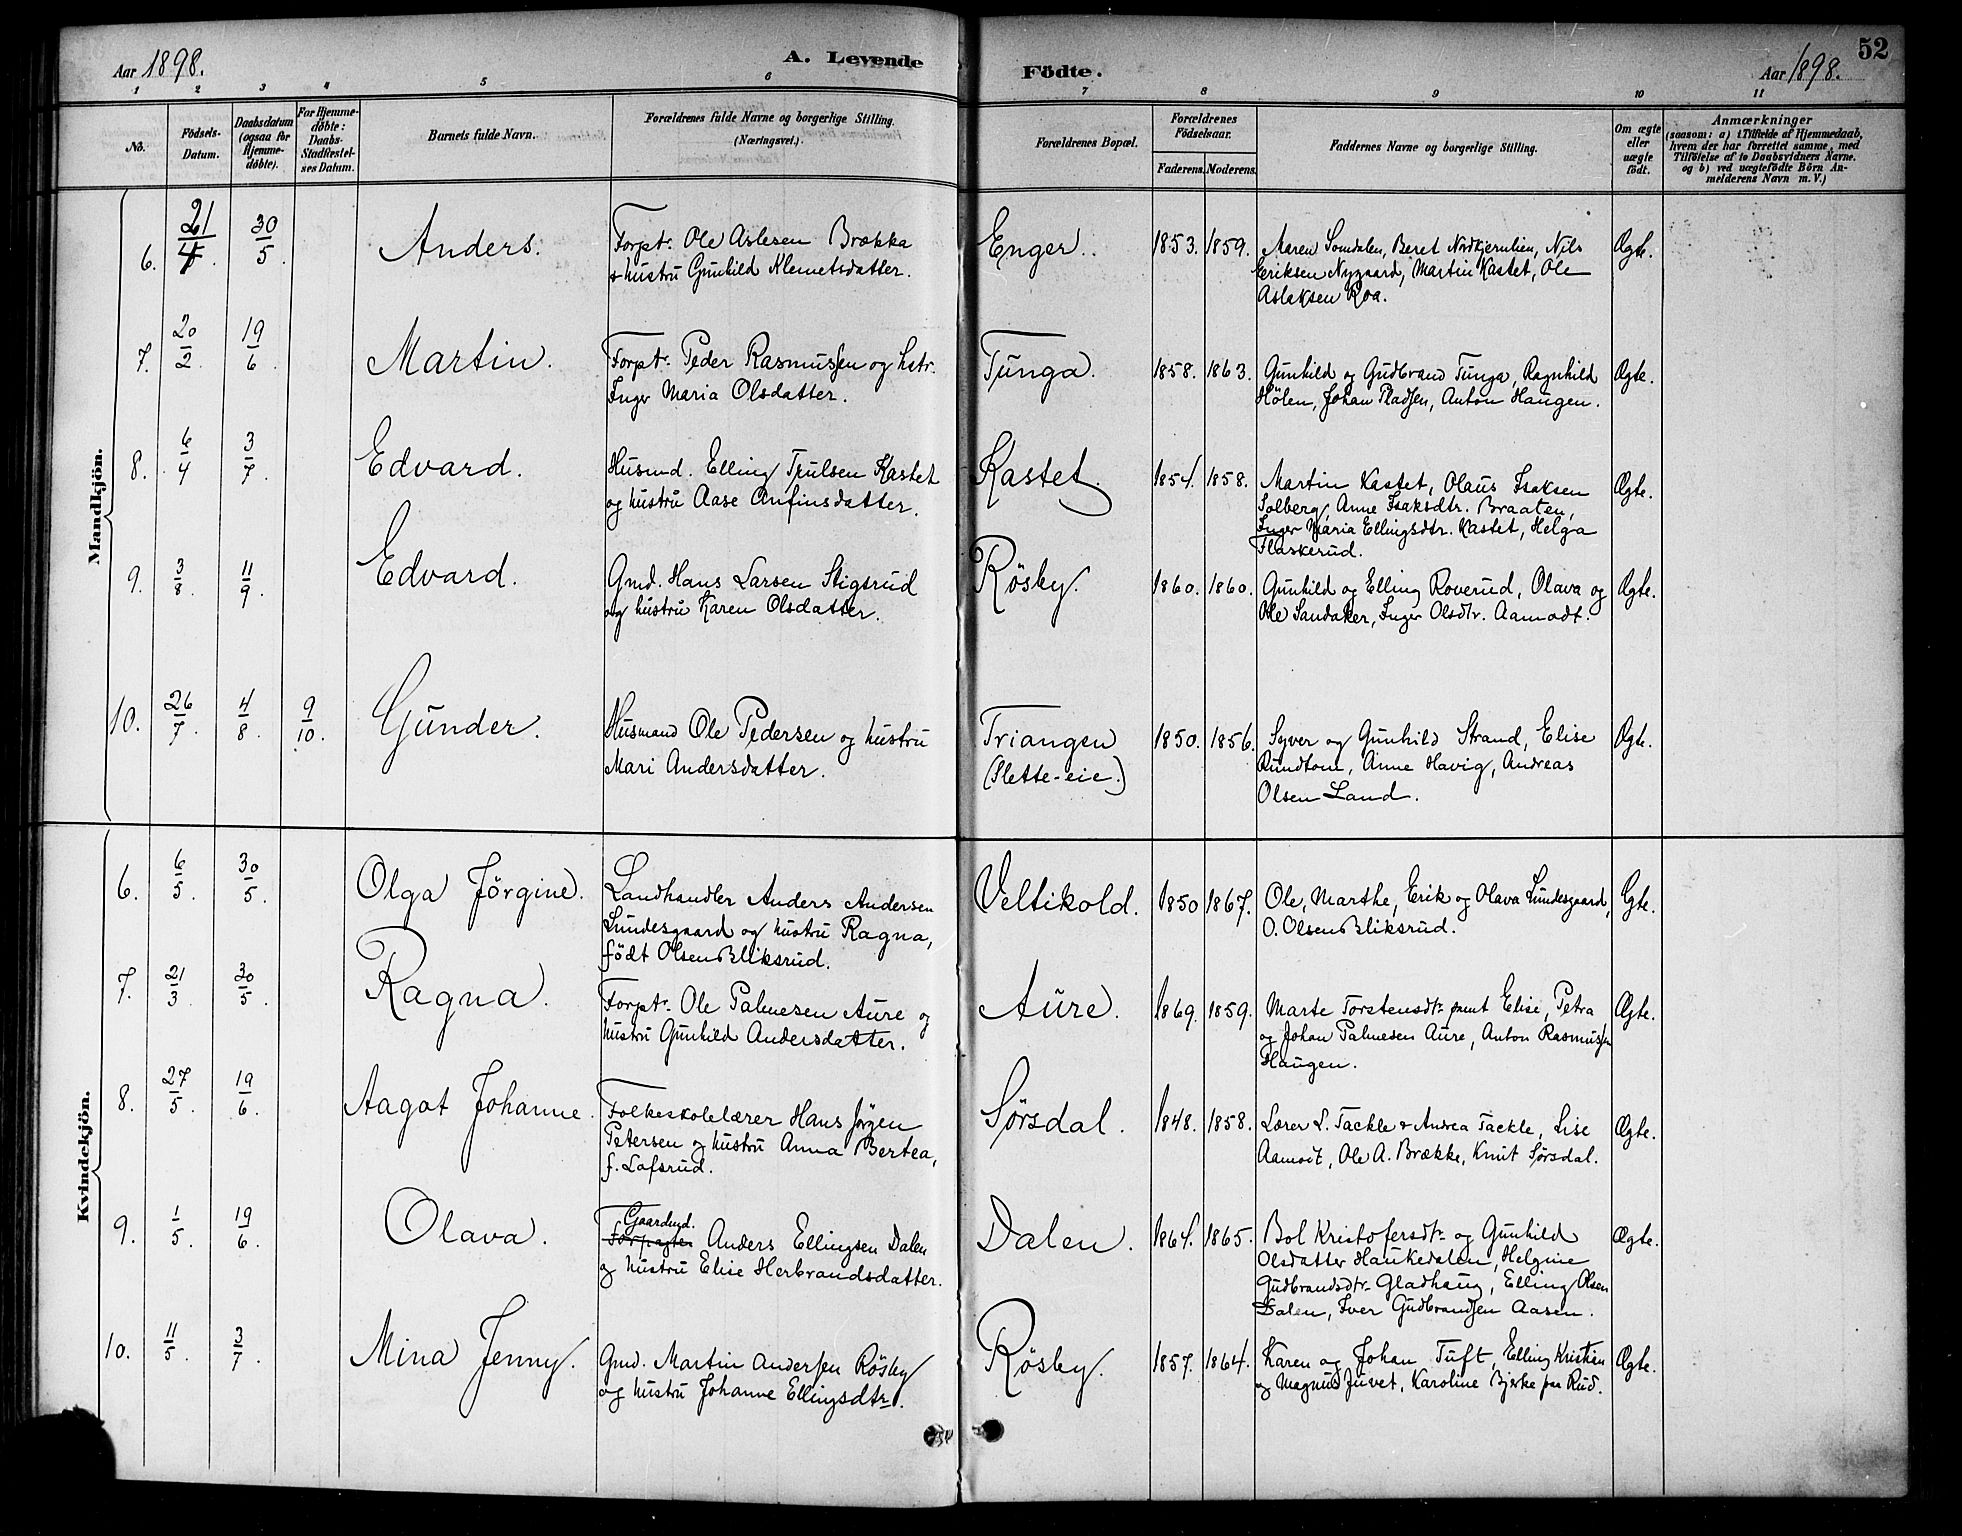 Aar 1898.
A. Levende
Födte.
Aar 1898.
52
1 2 3 4 5 6 7 8 9 10 11
No.
Födsels-
Datum.
Daabsdatum
(ogsaa for
Hjemme-
döbte).
For Hjemme-
döbte:
Daabs-
Stadfæstel-
ses Datum.
Barnets fulde Navn.
Forældrenes fulde Navne og borgerlige Stilling.
(Næringsvei.)
Forældrenes Bopæl.
Forældrenes
Födselsaar.
Faderens. Moderens.
Faddernes Navne og borgerlige Stilling.
Om ægte
eller
uægte
födt.
Anmærkninger
(saasom: a) i Tilfælde af Hjemmedaab,
hvem der har forrettet samme, med
Tilföielse af to Daabsvidners Navne.
og b) ved uægtefödte Börn An-
melderens Navn m. V.)
Mandkjön.
6. 21/4. 30/5. Anders. Forptr. Ole Aslesen Brækka
& hustru Gunhild Klemetsdatter.
Enger. 1853. 1859. Maren Somdalen, Beret Nordkjernlien, Nils
Eriksen Nygaard, Martin Kastet, Ole
Aslaksen Roa.
Ægte.
7. 20/2. 19/6. Martin. Forptr. Peder Rasmussen og hstr.
Inger Maria Olsdatter.
Tunga. 1858. 1863. Gunhild og Gudbrand Tunga, Ragnhild
Hölen, Johan Pladsen, Anton Haugen.
Ægte.
8. 6/4 3/7. Edvard. Husmd. Elling Trulsen Kastet
og hustru Aase Anfinsdatter.
Kastet. 1854. 1858. Martin Kastet, Olaus Isaksen
Solberg, Anne Isaksdtr. Braaten,
Inger Maria Ellingsdtr. Kastet, Helga
Flaskerud.
Ægte.
9. 3/8. 11/9. Edvard. Gmd. Hans Larsen Stigsrud
og hustru Karen Olsdatter.
Røsby. 1860. 1860. Gunhild og Elling Roverud, Olava og
Ole Sandaker, Inger Olsdtr. Aamodt.
Ægte.
10. 26/7. 4/8. 9/10. Gunder. Husmand Ole Pedersen og hustru
Mari Andersdatter.
Triangen
(Slette-eie.)
1850. 1856. Syver og Gunhild Strand, Elise
Rundtom, Anne Havig, Andreas
Olsen Land.
Ægte.
Kvindekjön.
6. 6/5. 30/5. Olga Jörgine. Landhandler Anders Andersen
Lundesgaard og hustru Ragna,
födt Olsen Bliksrud.
Veltikold. 1850 1867. Ole, Marthe, Erik og Olava Lundesgaard,
O. Olsen Bliksrud.
Egte.
7. 21/3. 30/5. Ragna. Forptr. Ole Palmesen Aure og
hustru Gunhild Andersdatter.
Aure. 1869. 1859. Marte Torstensdtr samt Elise, Petra
og Johan Palmesen Aure, Anton Rasmussen
Haugen.
Ægte.
8. 27/5. 19/6. Aagot Johanne. Folkeskolelærer Hans Jörgen
Petersen og hustru Anna Bertea,
f. Lafsrud.
Sørsdal. 1848. 1858. Lærer L. Tackle & Andrea Tackle, Lise
Aamodt, Ole A. Brække, Knut Sørsdal.
Ægte.
9. 1/5. 19/6. Olava. Gaardmd.
Forpagter Anders Ellingsen Dalen
og hustru Elise Herbrandsdatter.
Dalen. 1864. 1865. Bol Kristofersdtr og Gunhild
Olsdatter Haukedalen, Helgine
Gudbrandsdtr. Gladhaug, Elling Olsen
Dalen, Iver Gudbrandsen Aasen.
Ægte.
10. 11/5. 3/7. Mina Jenny. Gmd. Martin Andersen Rösby
og hustru Johanne Ellingsdtr.
Røsby. 1857. 1864. Karen og Johan Tuft, Elling Kristian
og Magnus Juvet, Karoline Bjerke paa Rud.
Ægte.